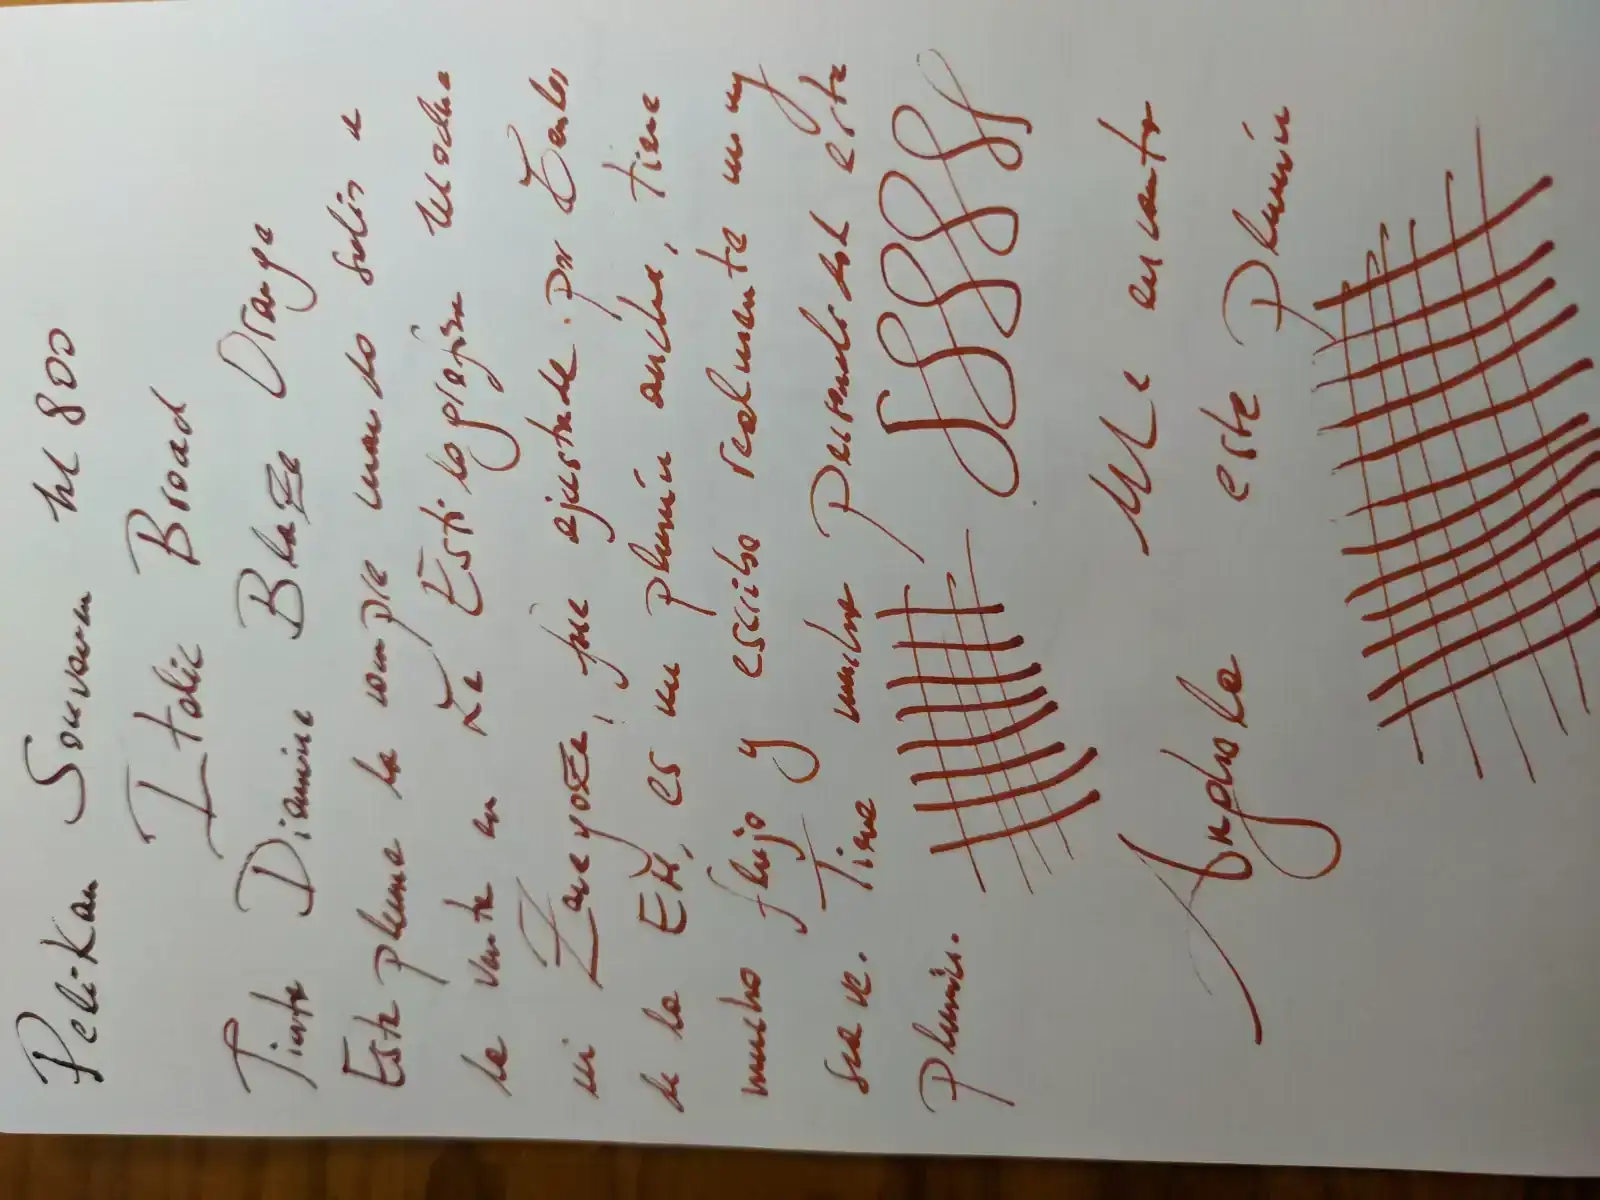 Pelikan Souveran M 800
Italic Broad
Tinta Diamine Blaze Orange
Esta pluma la compre cuando salio a
la venta en La Estilografica Moderna
en Zaragoza, fue ajustada por Carlos
de la EM, es un plumín ancho, tiene
mucho flujo y escribe realmente muy
suave. Tiene mucha Personalidad este
plumín.
Me encanta
Angelola este Plumín